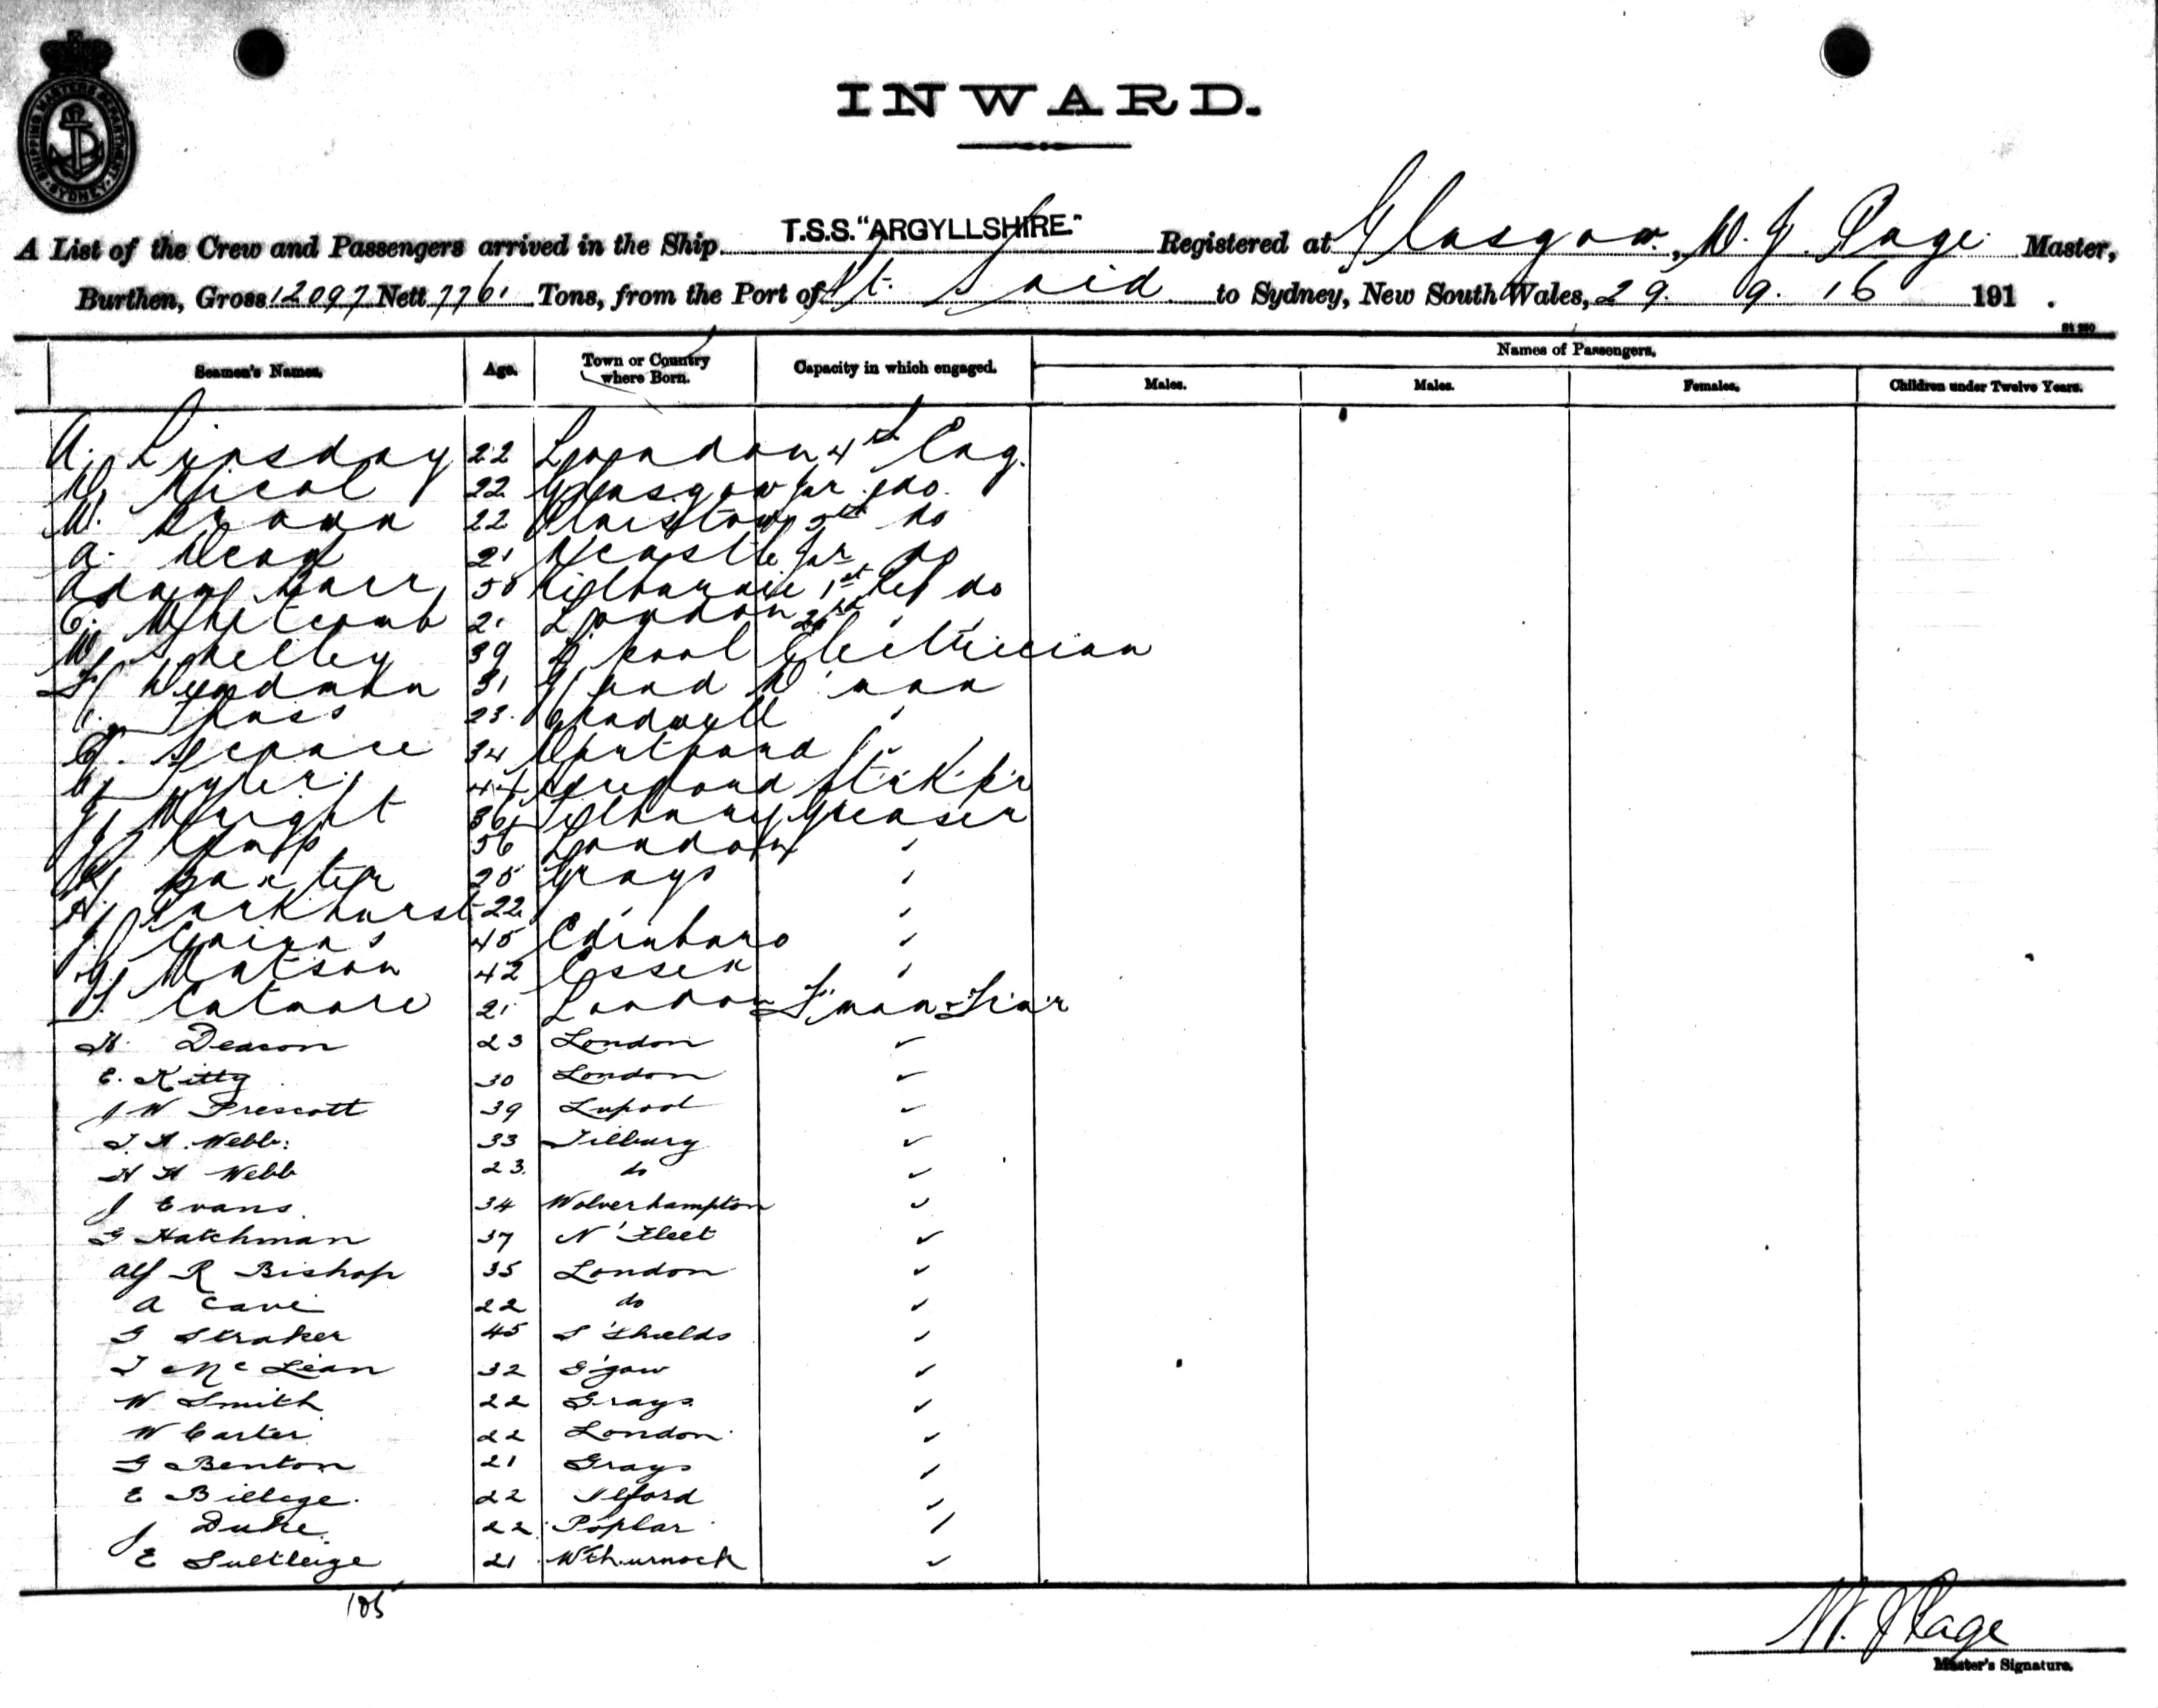 SHIPPING MASTERS DEPARTMENT SYDNEY
INWARD.
A List of the Crew and Passengers arrived in the Ship T.S.S. "ARGYLLSHIRE." Registered at Glasgow, W. J. Page Master,
Burthen, Gross 12097 Nett 7761 Tons, from the Port of Pt. Said to Sydney, New South Wales, 29. 9. 16 191 .
Seamen's Names. Age. Town or Country where Born. Capacity in which engaged. Names of Passengers.
Males. Males. Females. Children under Twelve Years.
A. Lindsay 22 London 4th Eng.
W. Nicol 22 Glasgow Jnr do.
W. Brown 22 Plaistow 5th do
A. 21 N'castle Jnr do
Adam Barr 50 Kilburnie 1st Ref do
E. Whitcomb 21 London 2nd " "
W. Shelley 39 L'pool Electrician
H. Wyndham 31
C. Thass 23. Chadwell "
34 "
Tyler 44 St'r'K'p'r
J. Wright 36 Tilbury Greaser
J. Kemp 56 London "
Baxter 25 Grays "
A. Parkhurst 22 " "
J. Cairns 45 Edinburo "
G. Watson 42 Essex "
F. Catmore 21 London F'man & Tr'm'r
H. Deacon 23 London ✓
E. Kitty 30 London ✓
J W Prescott 39 Lupool ✓
T. H. Webb. 33 Tilbury ✓
H H Webb 23. do ✓
J Evans. 34 Wolverhampton ✓
G Hatchman 37 N'Fleet ✓
Alf R Bishop 35 London ✓
A Cave 22 do ✓
G Straker 45 S'Shields ✓
T McLean 32 G'gow ✓
W Smith 22 Grays. ✓
W Carter 22 London. ✓
G Benton 21 Grays ✓
E Billege. 22 Ilford ✓
J Duke. 22. Poplar ✓
E Suttleige 21 W'thurnock ✓
105
W. J Page
Master's Signature.